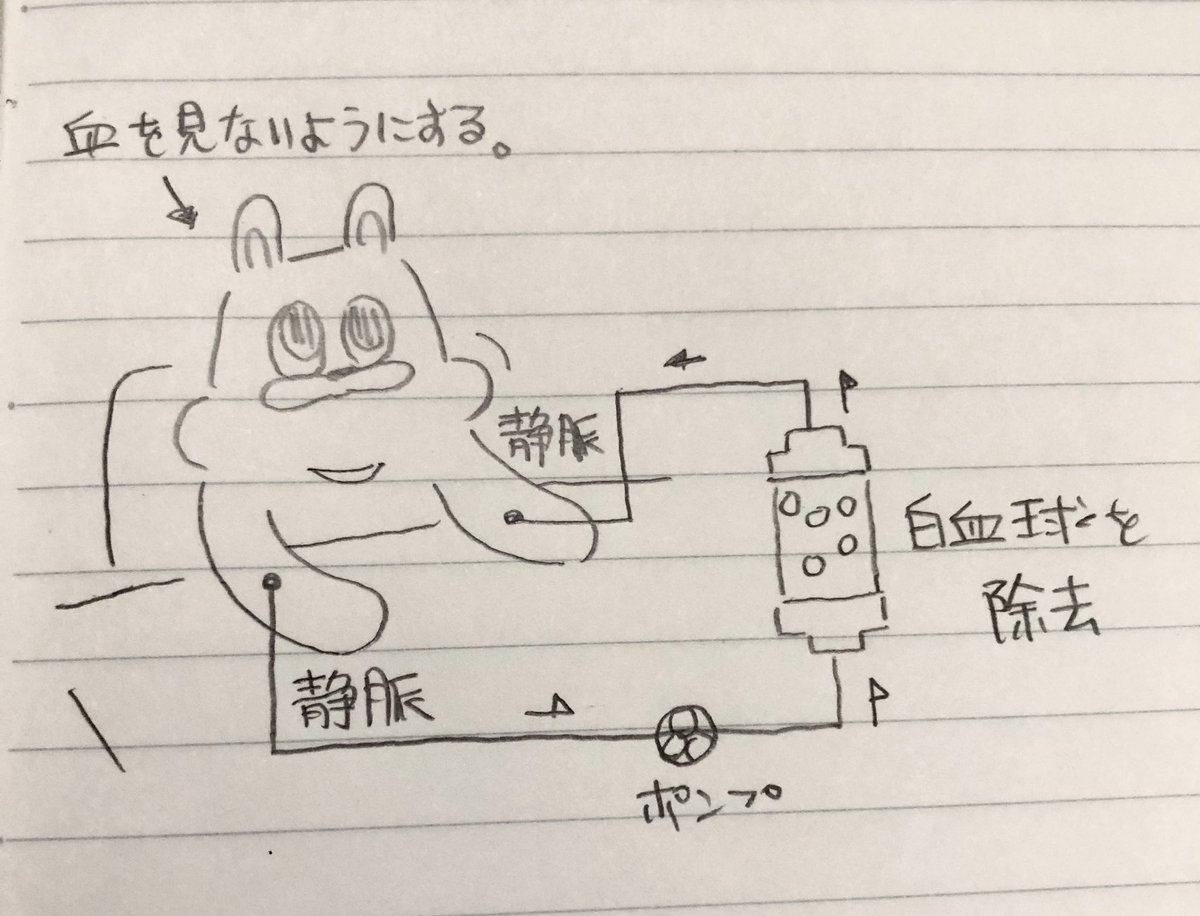 血を見ないようにする。
静脈
白血球を
除去
静脈
ポンプ